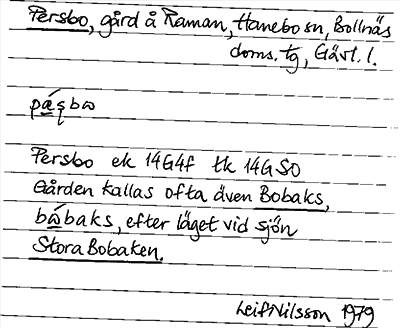 Persbo, gård å Raman, Hanebo sn, Bollnäs
doms. tg, Gävl. l.
pá̱s̨bɷ
Persbo ek 14G4f tk 14G SO
Gården kallas ofta även Bobaks,
bɷ́baks, efter läget vid sjön
Stora Bobaken.
Leif Nilsson 1979